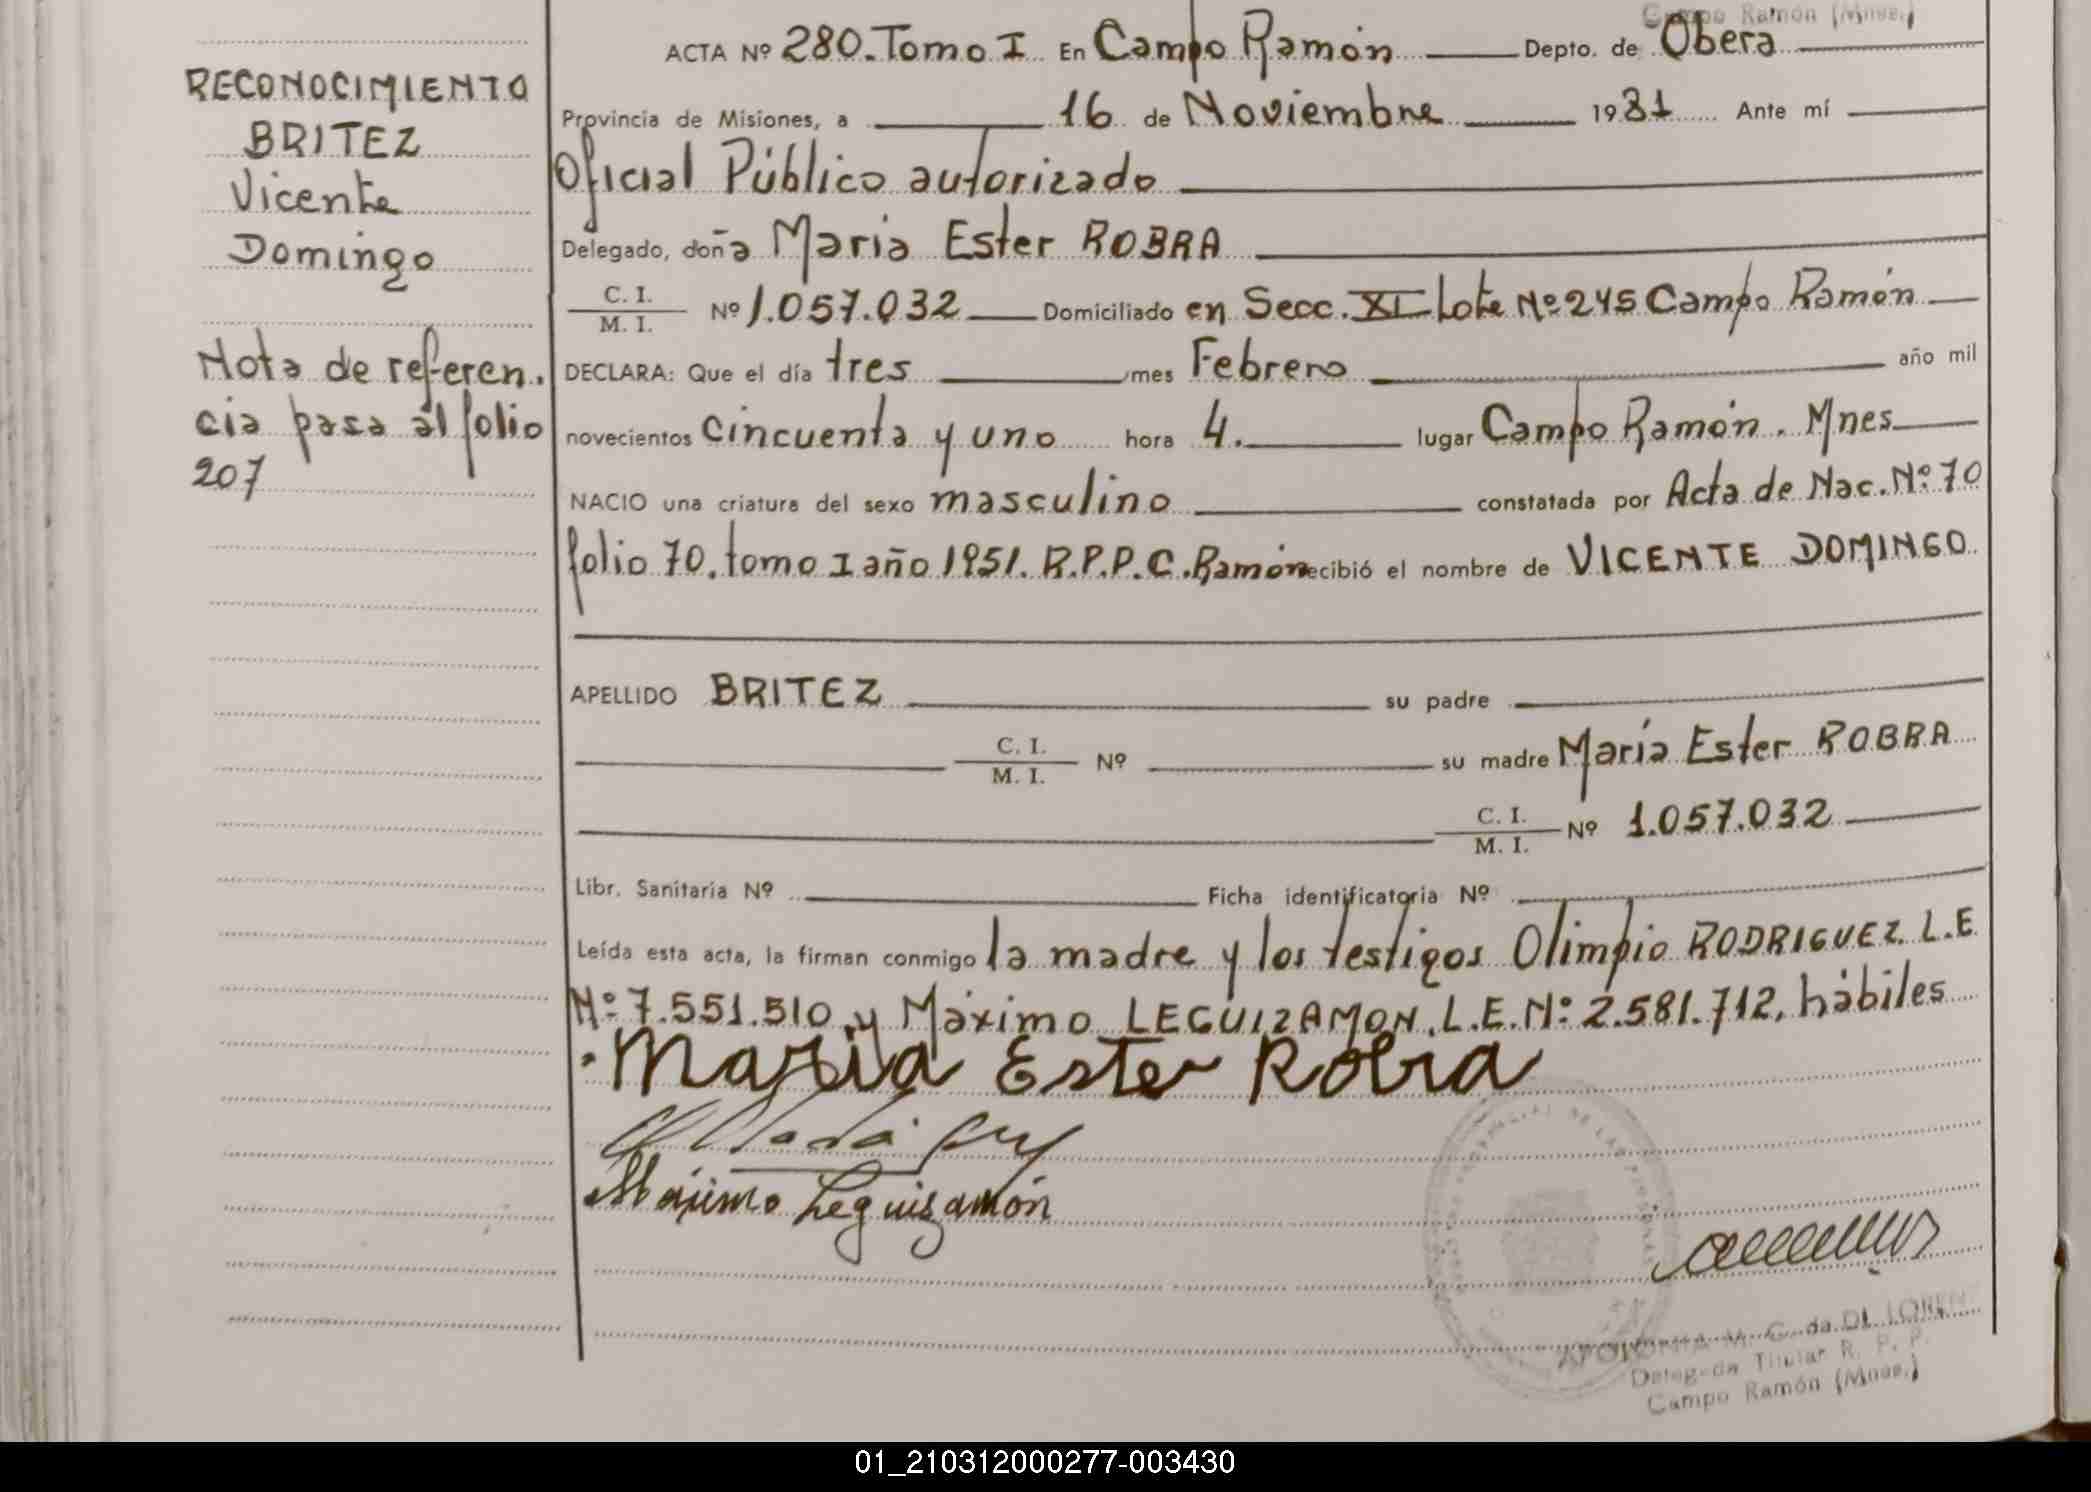 Campo Ramón (Mnes.)
ACTA Nº 280. Tomo I En Campo Ramón Depto. de Obera
RECONOCIMIENTO
BRITEZ
Vicente
Domingo
Nota de referen.
cia pasa al folio
207
Provincia de Misiones, a 16 de Noviembre 1981 Ante mí
Oficial Público autorizado
Delegado, doña Maria Ester ROBRA
C. I.
M. I. Nº 1.057.032 Domiciliado en Secc. XI Lote Nº 245 Campo Ramón
DECLARA: Que el día tres mes Febrero año mil
novecientos cincuenta y uno hora 4. lugar Campo Ramón. Mnes
NACIO una criatura del sexo masculino constatada por Acta de Nac. Nº 70
folio 70. tomo I año 1951. R.P.P. C. Ramón recibió el nombre de VICENTE DOMINGO
APELLIDO BRITEZ su padre
C. I.
M. I. Nº su madre María Ester ROBRA
C. I.
M. I. Nº 1.057.032
Libr. Sanitaria Nº Ficha identificatoria Nº
Leída esta acta, la firman conmigo la madre y los testigos Olimpio RODRIGUEZ. L.E
Nº 7.551.510. y Máximo LEGUIZAMON. L.E. Nº 2.581.712, hábiles
Maria Ester Robra
Maximo Leguizamón
APOLONIA M. C. da DI LORENZ
Delegada Titular R. P. P.
Campo Ramón (Mnes.)
01_210312000277-003430